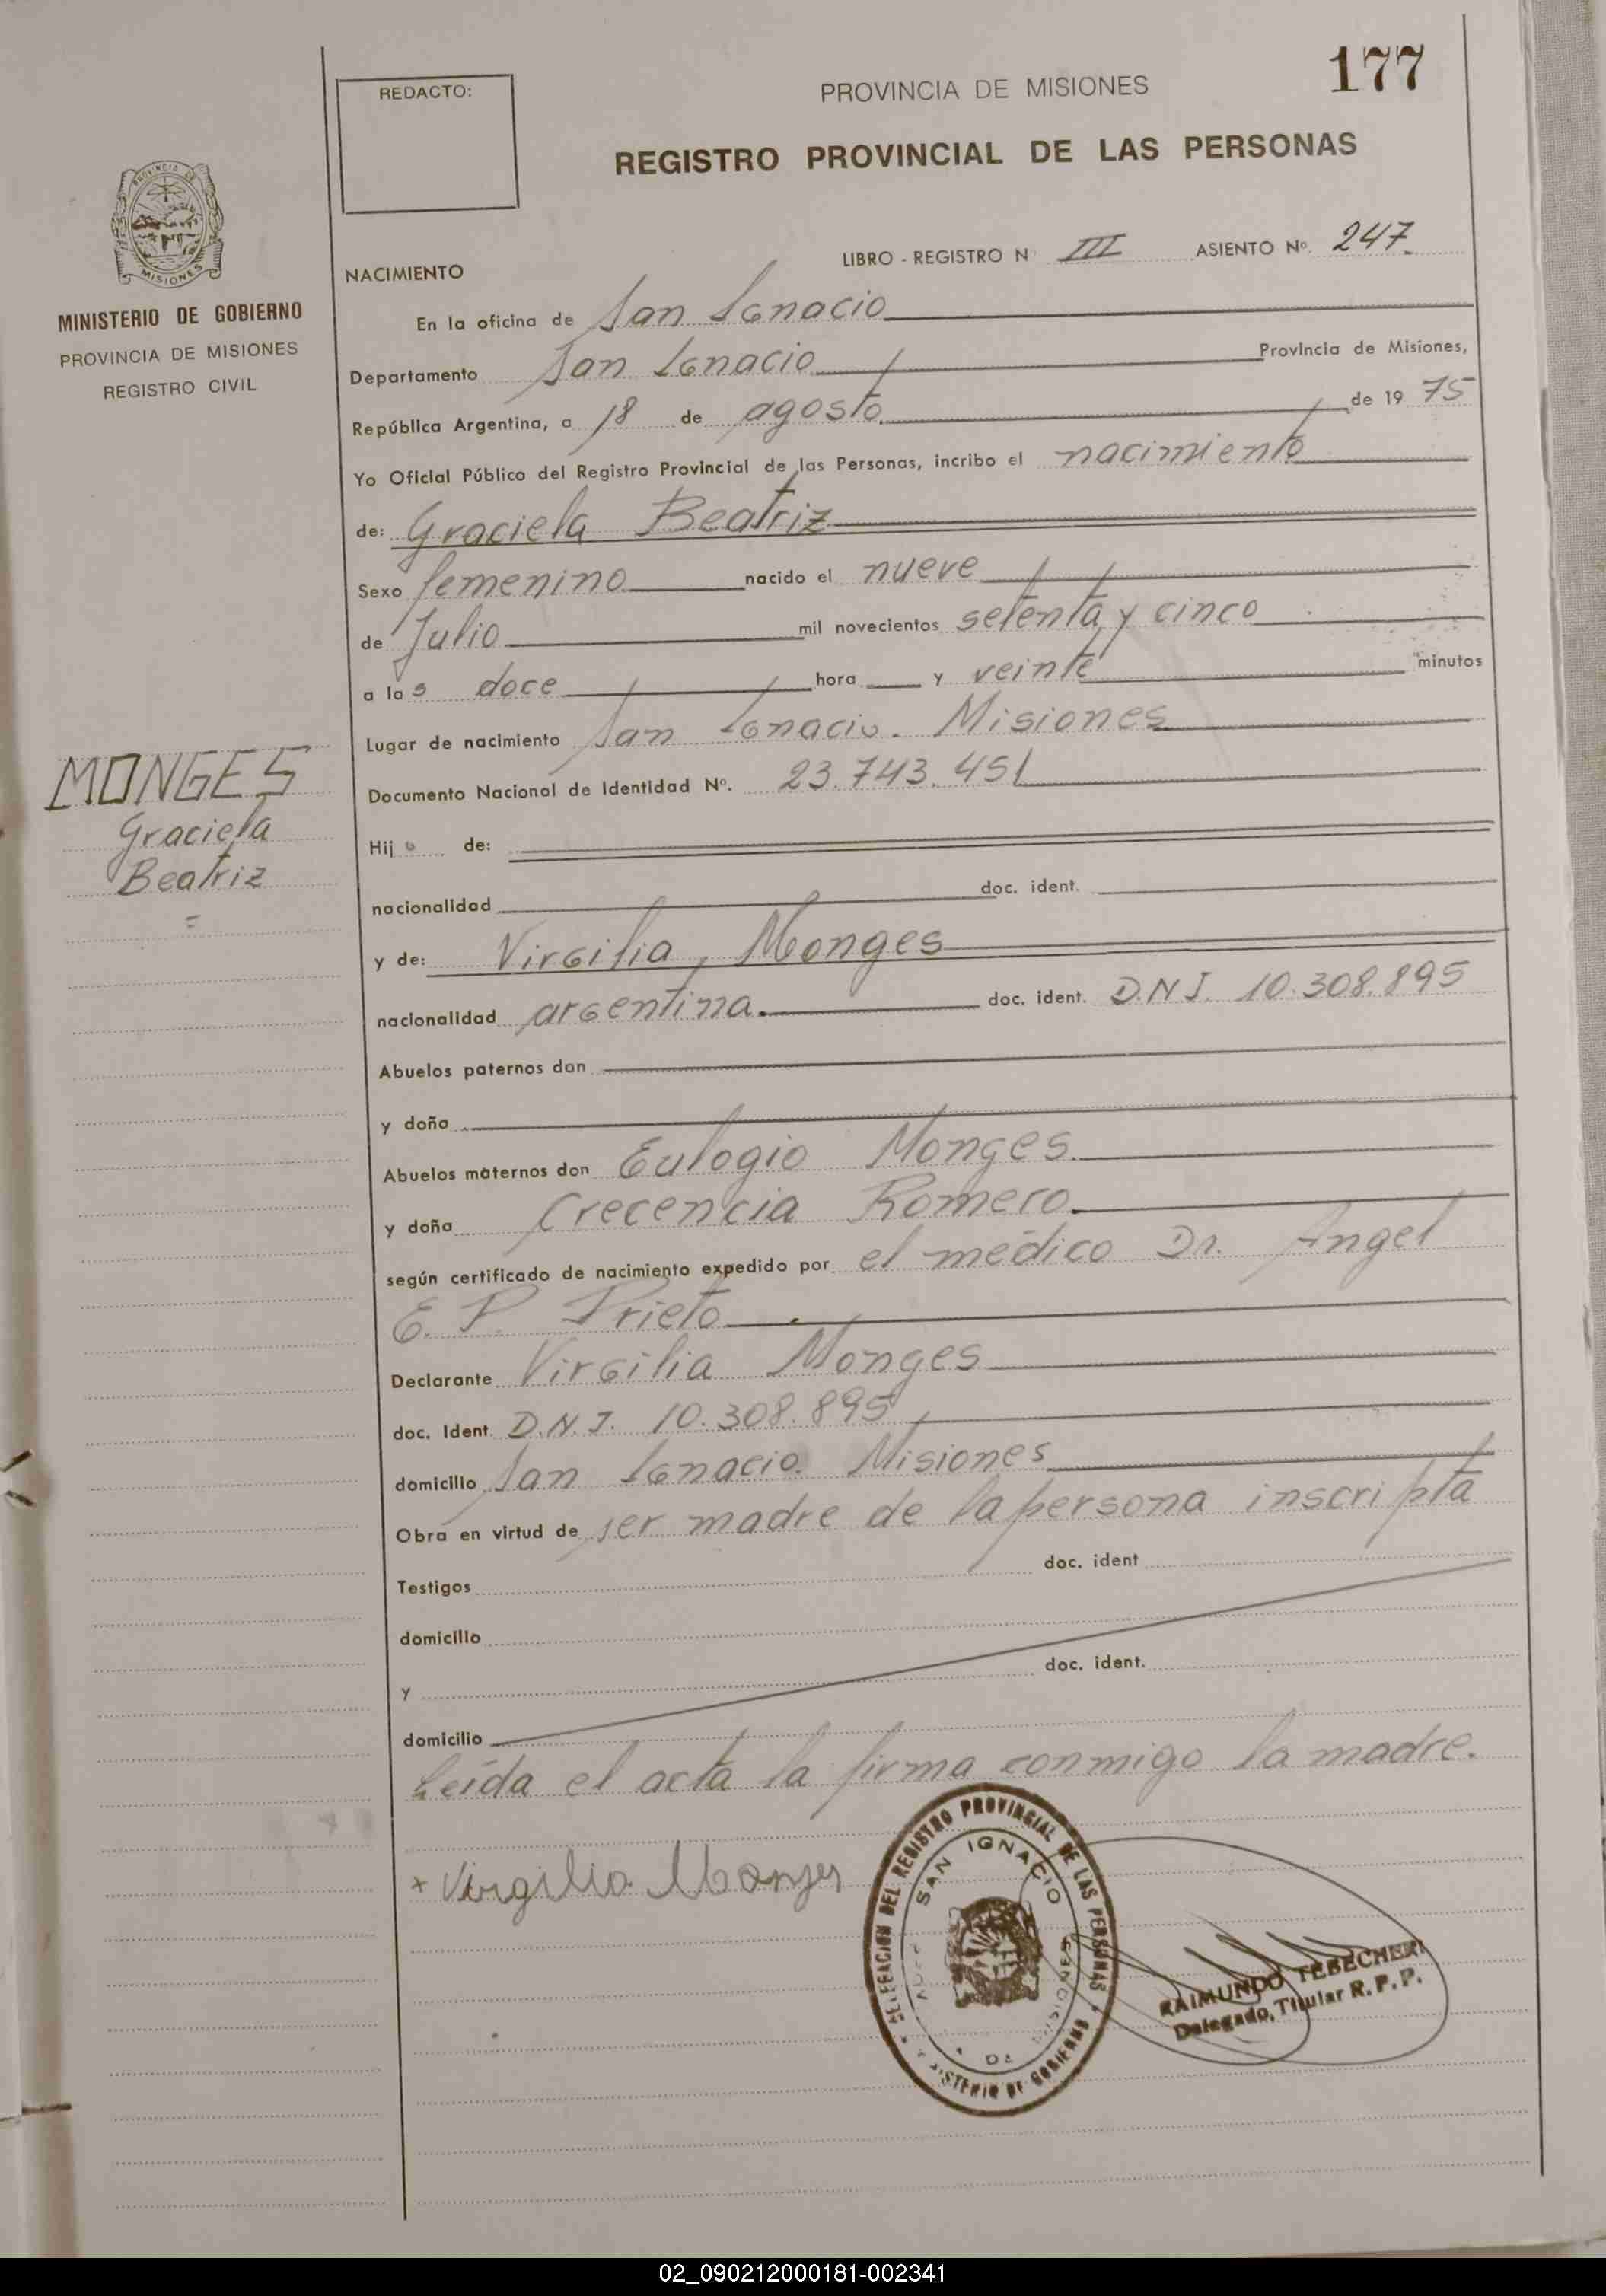 177
REDACTO:
PROVINCIA DE MISIONES
REGISTRO PROVINCIAL DE LAS PERSONAS
PROVINCIA DE
MISIONES
MINISTERIO DE GOBIERNO
PROVINCIA DE MISIONES
REGISTRO CIVIL
LIBRO - REGISTRO N° III ASIENTO Nº. 247
NACIMIENTO
En la oficina de San Ignacio
Departamento San Ignacio Provincia de Misiones,
República Argentina, a 18 de agosto de 19 75
Yo Oficial Público del Registro Provincial de las Personas, incribo el nacimiento
de: Graciela Beatriz
Sexo femenino nacido el nueve
de Julio mil novecientos setenta y cinco
a las doce hora y veinte minutos
Lugar de nacimiento San Ignacio. Misiones
Documento Nacional de Identidad Nº. 23.743.451
MONGES
Graciela
Beatriz
=
Hij de:
nacionalidad doc. ident.
y de: Virgilia Monges
nacionalidad argentina. doc. ident. D.N.I. 10.308.895
Abuelos paternos don
y doña
Abuelos maternos don Eulogio Monges.
y doña Crecencia Romero.
según certificado de nacimiento expedido por el médico Dr. Angel
E. P. Prieto
Declarante Virgilia Monges
doc. Ident. D.N.I. 10.308.895
domicilio San Ignacio. Misiones
Obra en virtud de ser madre de la persona inscripta
Testigos doc. ident
domicilio
y doc. ident.
domicilio
Leída el acta la firma conmigo la madre.
+ Virgilia Monges
DELEGACION DEL REGISTRO PROVINCIAL DE LAS PERSONAS
SAN IGNACIO
MINISTERIO DE GOBIERNO
RAIMUNDO TEBECHERI
Delegado, Titular R. P. P.
02_090212000181-002341